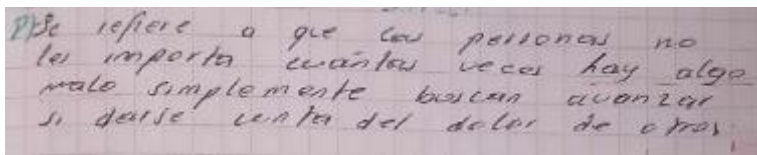 P/Se refiere a que las personas no
les importa cuántas veces hay algo
malo simplemente buscan avanzar
si darse cunta del dolor de otros.